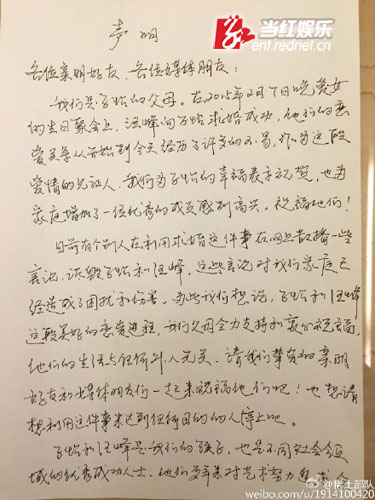 当红娱乐
ent.rednet.cn
声明
各位亲朋好友、各位媒体朋友：
我们是子怡的父母。在2015年2月7日晚，爱女
的生日聚会上，汪峰向子怡求婚成功，他们的恋
爱关系从开始到今天经历了许多的不易，作为这段
爱情的见证人，我们为子怡的幸福表示祝贺，也为
家庭增加了一位优秀的成员感到高兴。祝福他们！
目前有个别人在利用求婚这件事在网上散播一些
言论，诋毁子怡和汪峰，这些言论对我们家庭已
经造成了困扰和伤害。为此我们想说，子怡和汪峰
这段美好的恋爱进程，我们父母全力支持和衷心祝福，
他们的生活与任何外人无关。请我们挚爱的亲朋
好友和媒体朋友们一起来祝福他们吧！也想请
想利用这件事来达到任何目的的人停止吧。
子怡和汪峰是我们的孩子，也是不同社会领
域的优秀成功人士，他们多年来对艺术努力追求，
@稀土部队
weibo.com/u/1914100420